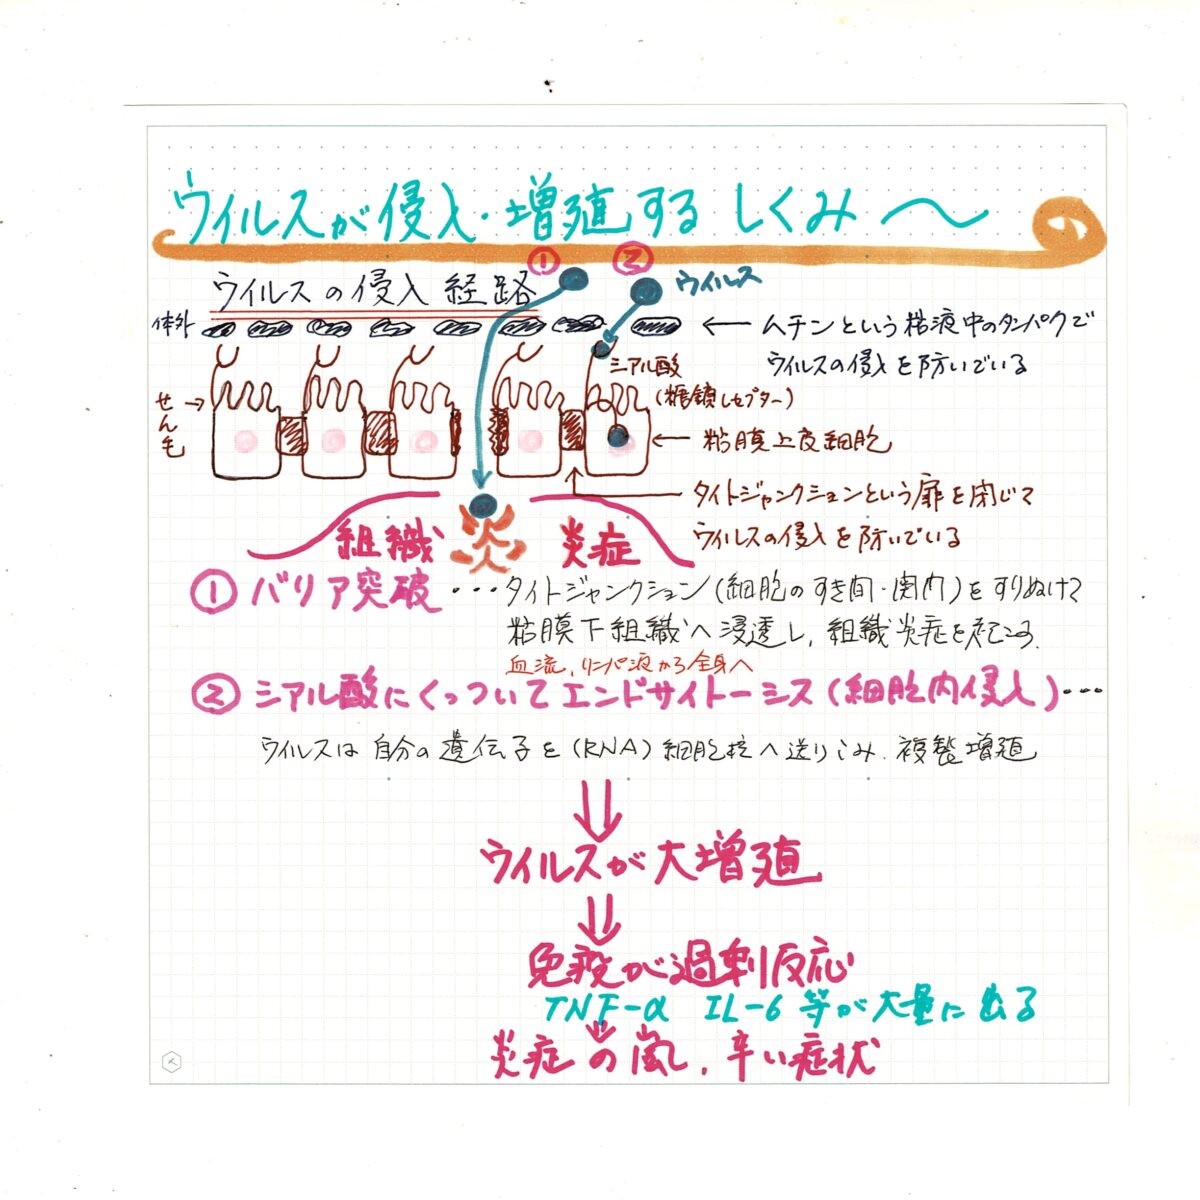 ウイルスが侵入・増殖するしくみ〜
① ②
ウイルスの侵入経路
ウイルス
体外
←ムチンという粘液中のタンパクで
ウイルスの侵入を防いでいる
シアル酸
(糖鎖レセプター)
せん毛→
←粘膜上皮細胞
タイトジャンクションという扉を閉じて
ウイルスの侵入を防いでいる
組織 炎 炎症
①バリア突破・・・タイトジャンクション(細胞のすき間・関門)をすりぬけて
粘膜下組織へ浸透し、組織炎症を起こす.
血流,リンパ液から全身へ
②シアル酸にくっついてエンドサイトーシス(細胞内侵入)・・・
ウイルスは自分の遺伝子を(RNA)細胞核へ送りこみ、複製増殖
⇓
ウイルスが大増殖
⇓
免疫が過剰反応
TNF-α IL-6等が大量に出る
炎症の嵐,辛い症状